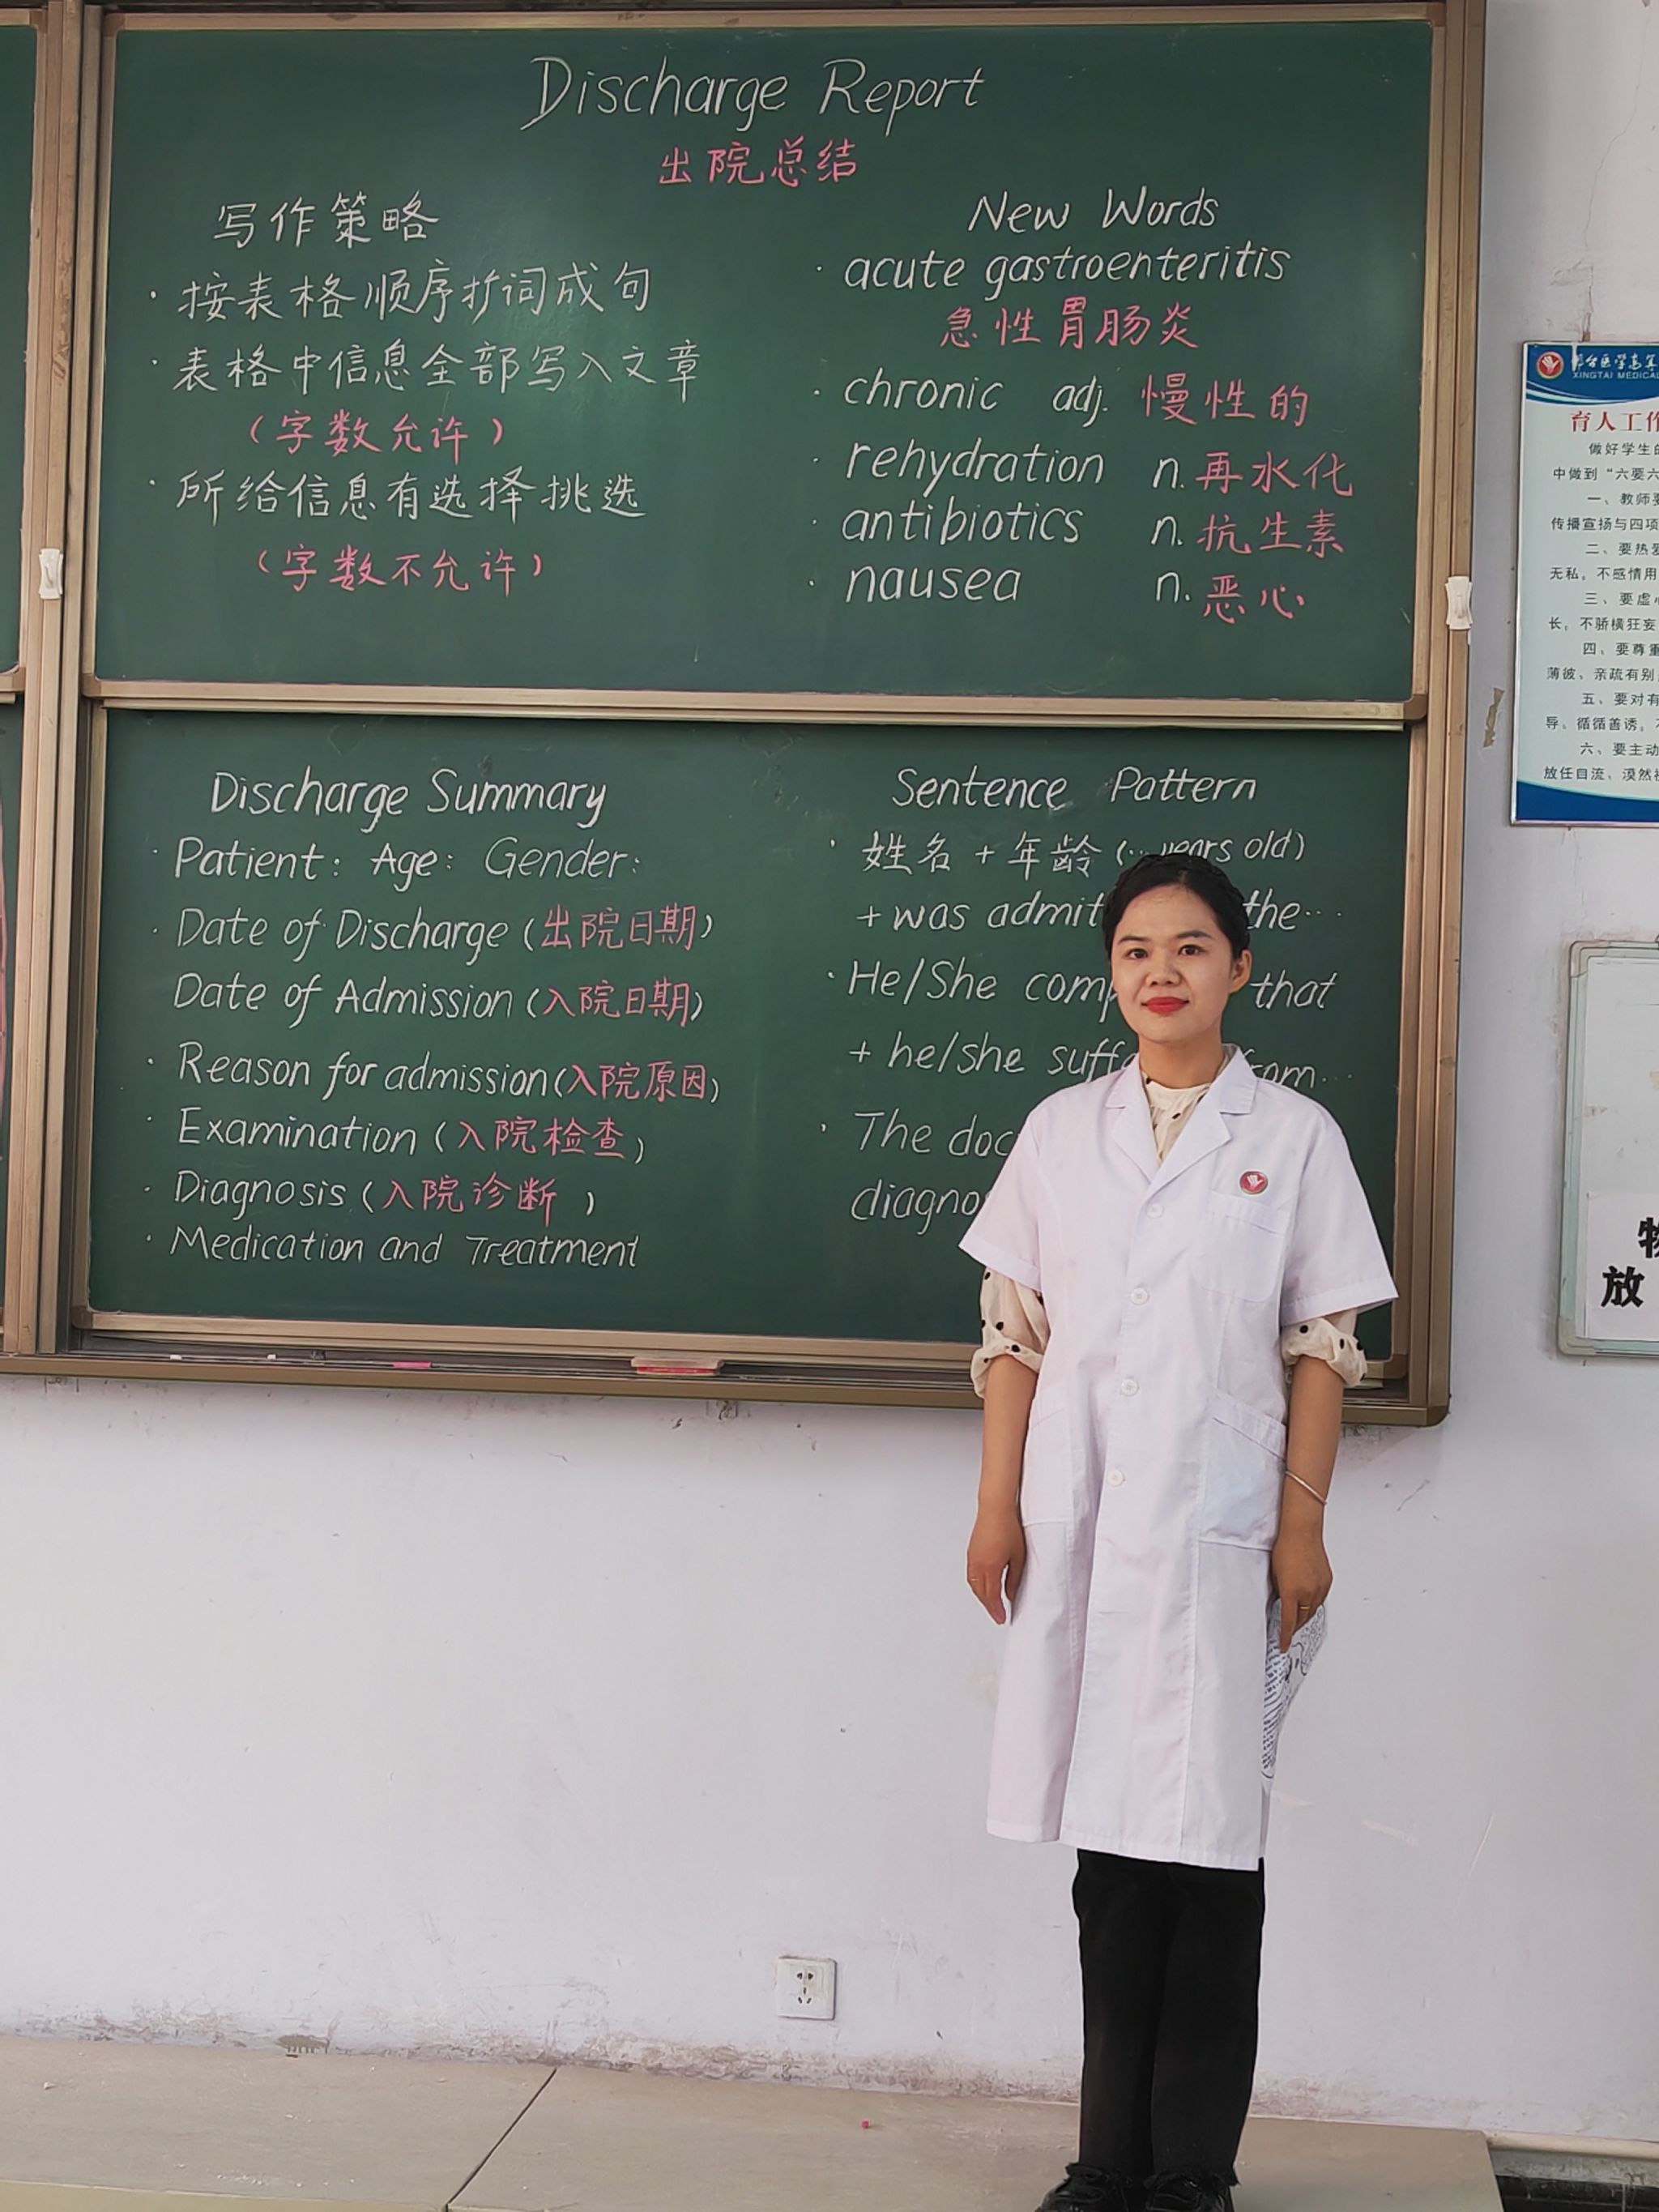 Discharge Report
出院总结
写作策略
· 按表格顺序扩词成句
· 表格中信息全部写入文章
（字数允许）
· 所给信息有选择挑选
（字数不允许）
New Words
· acute gastroenteritis
急性胃肠炎
· chronic adj. 慢性的
· rehydration n. 再水化
· antibiotics n. 抗生素
· nausea n. 恶心
Discharge Summary
· Patient: Age: Gender:
· Date of Discharge (出院日期)
Date of Admission (入院日期)
· Reason for admission (入院原因)
· Examination (入院检查)
· Diagnosis (入院诊断)
· Medication and Treatment
Sentence Pattern
· 姓名 + 年龄 (… years old)
+ was admit the…
· He/She that
+ he/she
· The
XINGTAI MEDICAL
育人工作
做好学生的
中做到“六要六
一、教师要
传播宣扬与四项
二、要热爱
无私，不感情用
三、要虚心
长，不骄横狂妄
四、要尊重
薄彼、亲疏有别
五、要对有
导、循循善诱，不
六、要主动
放任自流、漠然视
物
放